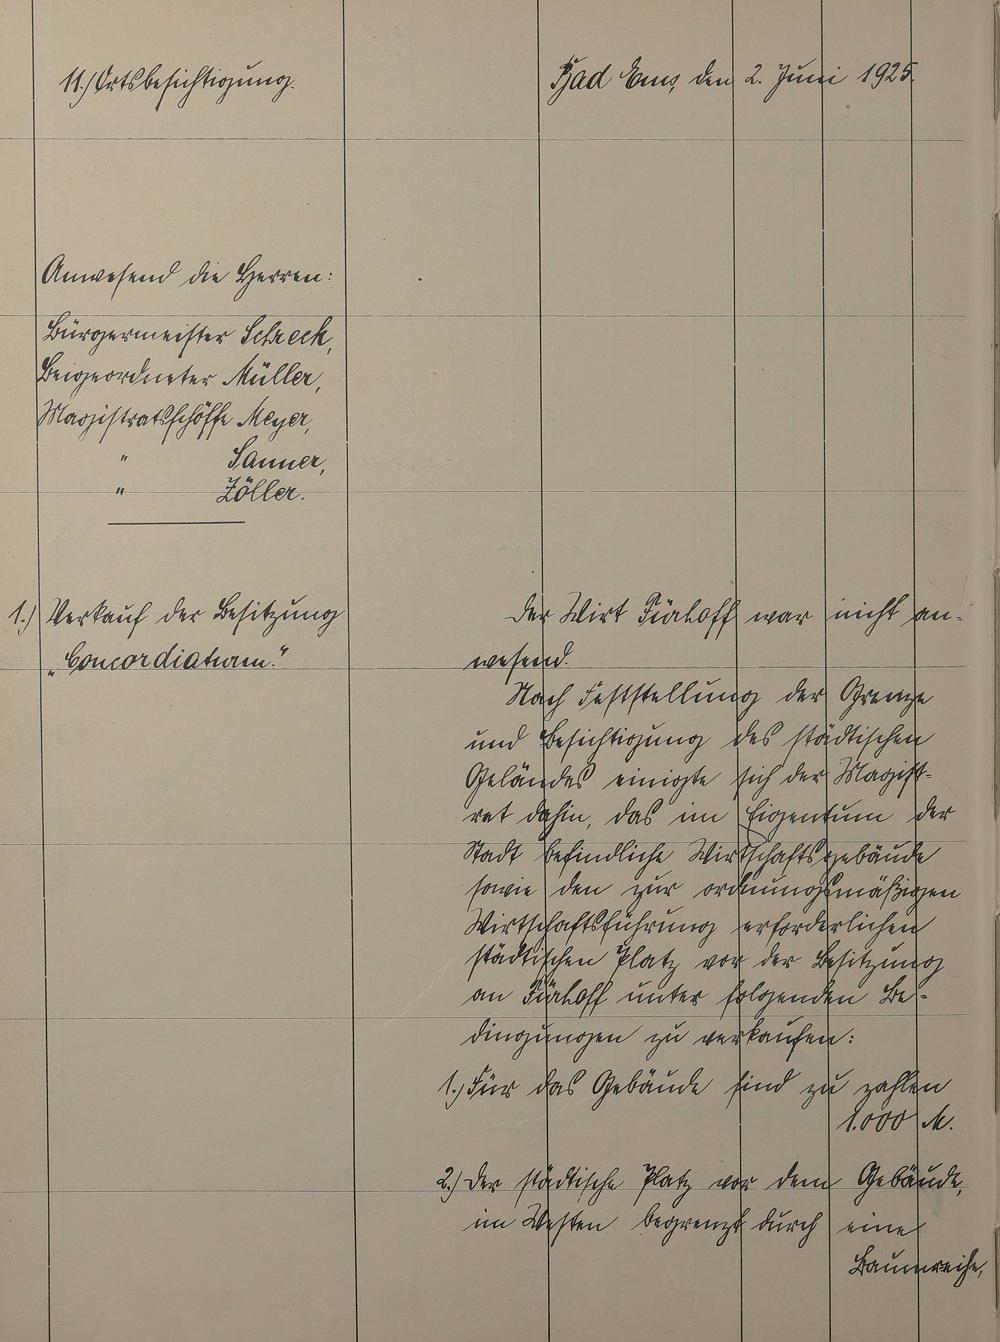 11.) Ortsbesichtigung.
Bad Ems, den 2. Juni 1925.
Anwesend die Herren:
Bürgermeister Schreck,
Beigeordneter Müller,
Magistratsschöffe Meyer,
" Sanner,
" Zöller.
1.) Verkauf der Besitzung
„Concordiaturm."
Der Wirt war nicht an-
wesend.
Nach Feststellung der Grenze
und Besichtigung des städtischen
Geländes einigte sich der Magist-
rat dahin, das im Eigentum der
Stadt befindliche Wirtschaftsgebäude
sowie den zur ordnungsmäßigen
Wirtschaftsführung erforderlichen
städtischen Platz vor der Besitzung
an unter folgenden Be-
dingungen zu verkaufen:
1.) Für das Gebäude sind zu zahlen
1.000 M.
2.) Der städtische Platz vor dem Gebäude,
im Westen begrenzt durch eine
Baumreihe,